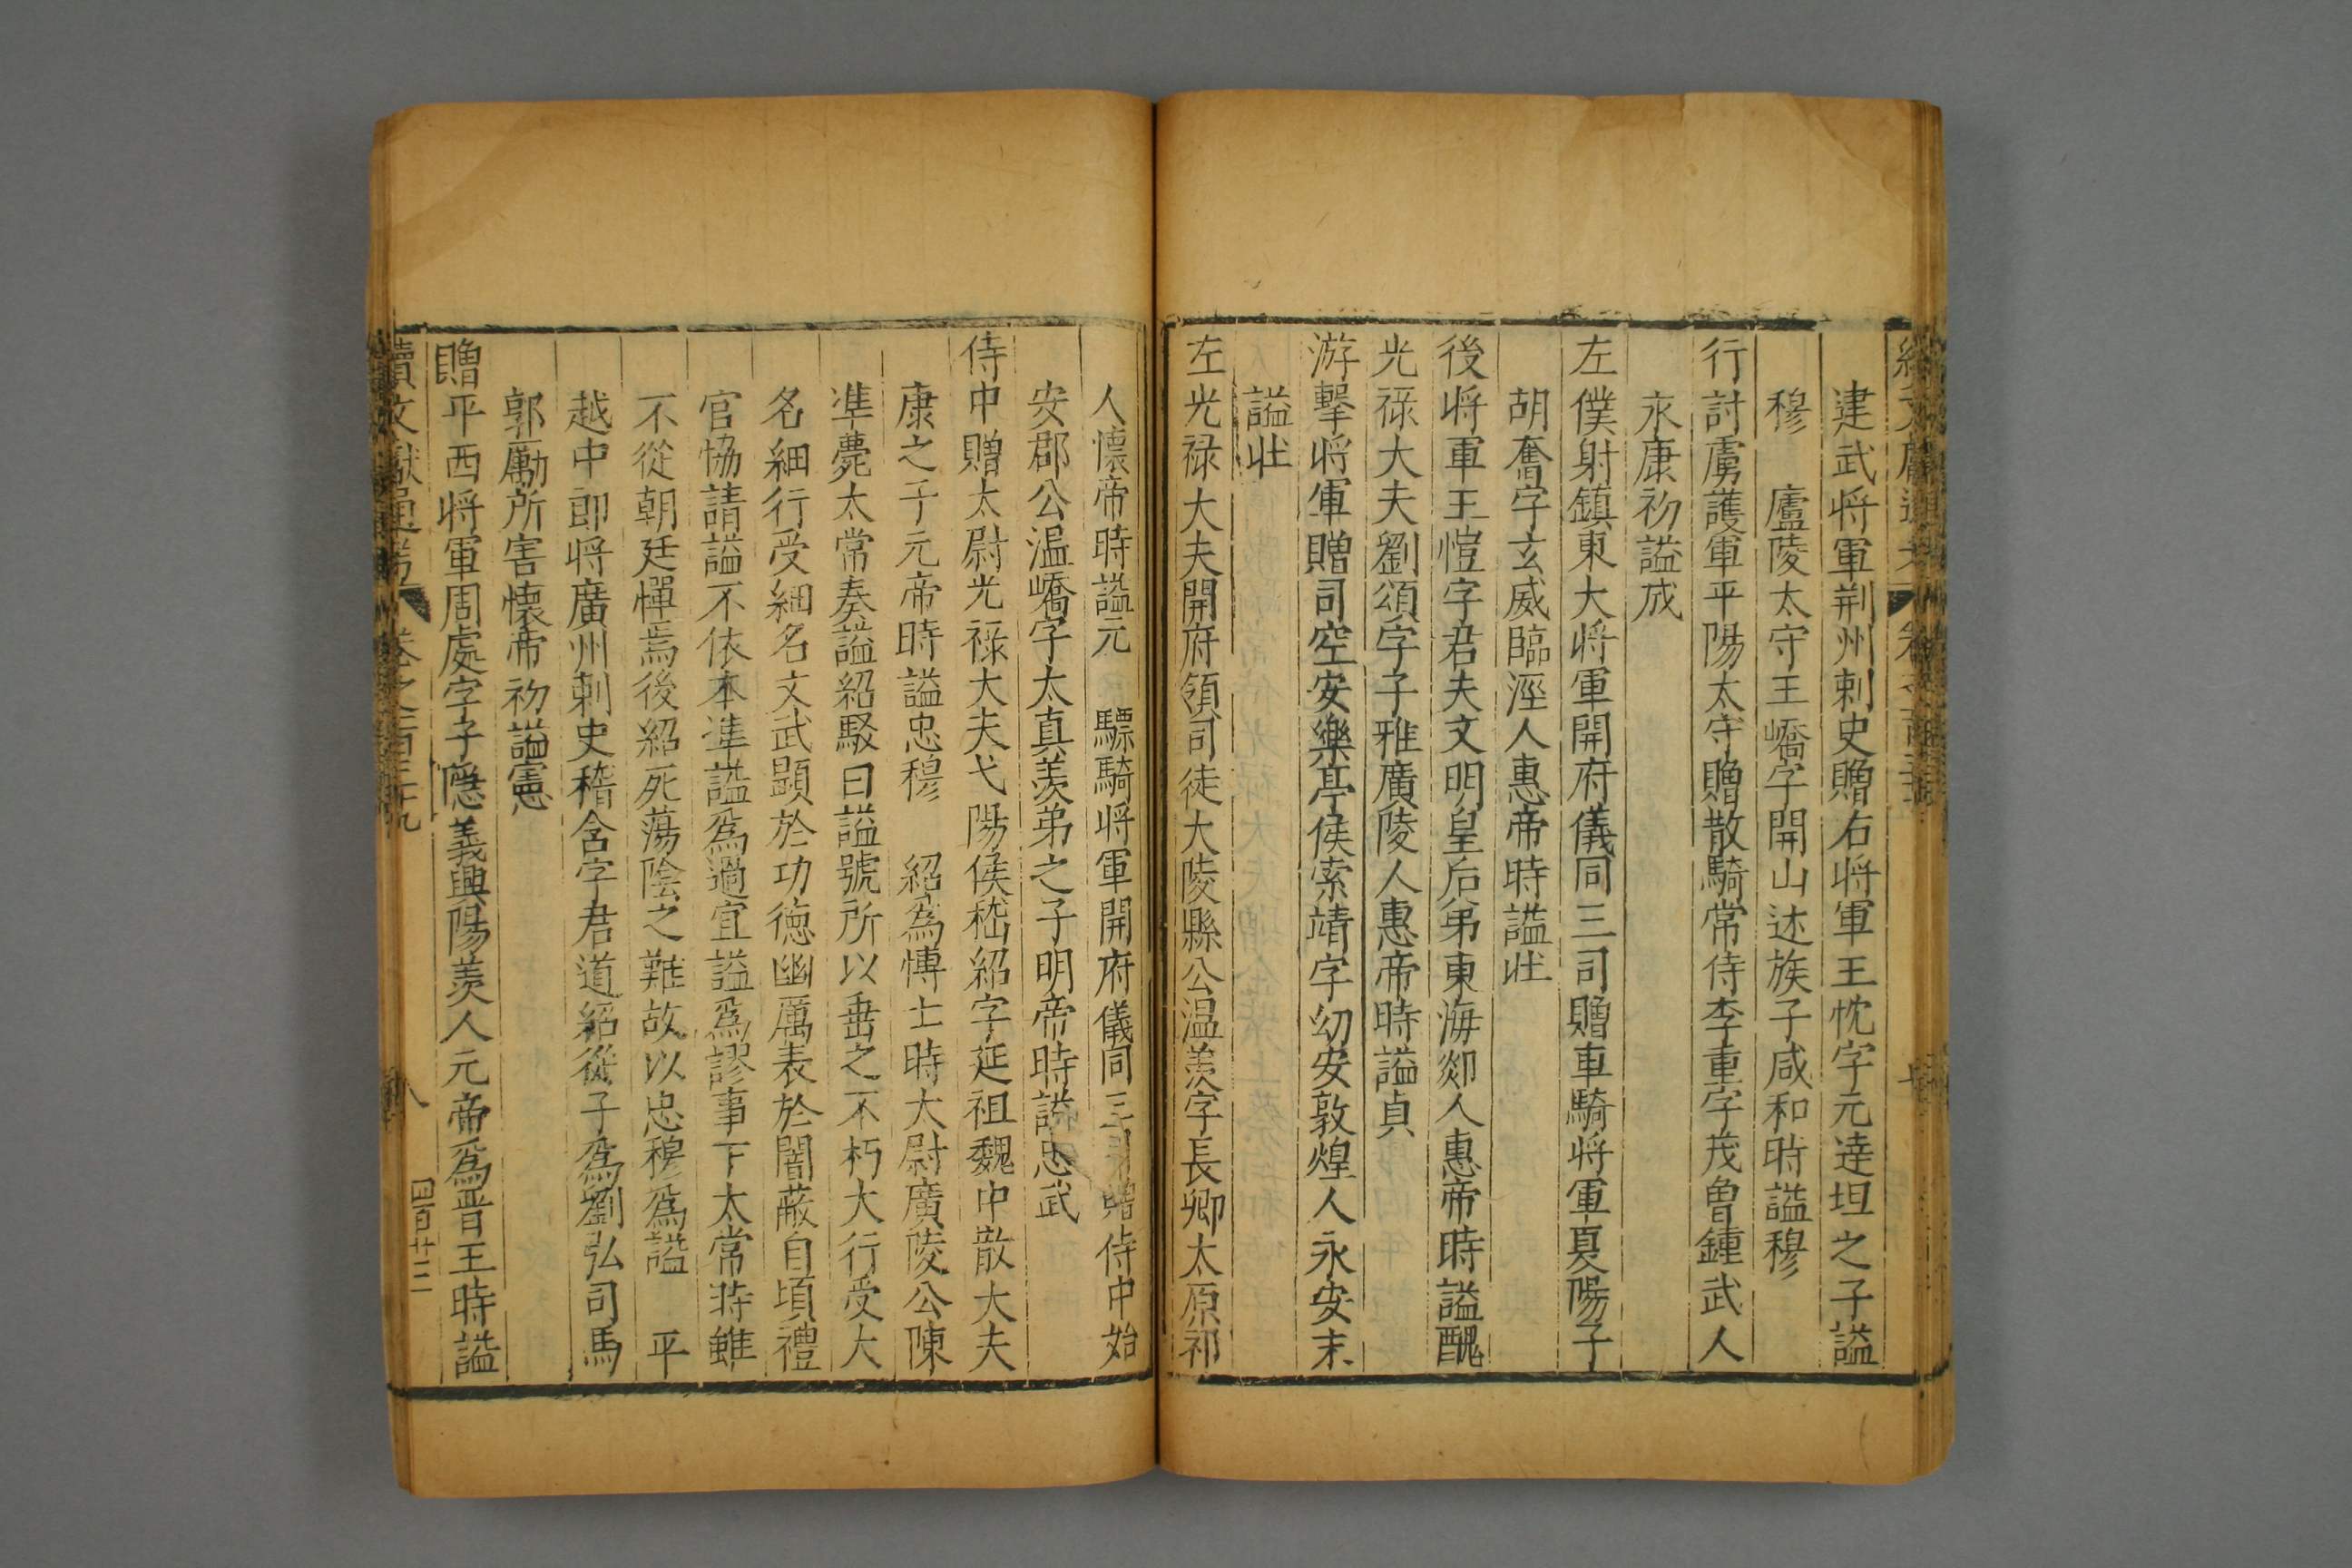 續文獻通考 卷之一百 七
建武将軍荆州刺史贈右将軍王忱字元達坦之子謚
穆 廬陵太守王嶠字開山述族子咸和時謚穆
行討虜護軍平陽太守贈散騎常侍李重字茂曾鍾武人
永康初謚成
左僕射鎮東大将軍開府儀同三司贈車騎将軍夏陽子
胡奮字玄威臨涇人惠帝時謚壯
後将軍王愷字君夫文明皇后弟東海郯人惠帝時謚醜
光禄大夫劉頌字子雅廣陵人惠帝時謚貞
游擊将軍贈司空安樂亭侯索靖字幼安敦煌人永安末
謚壯
左光禄大夫開府領司徒大陵縣公温羨字長卿太原祁
人懷帝時謚元 驃騎将軍開府儀同三司贈侍中始
安郡公温嶠字太真羨弟之子明帝時謚忠武
侍中贈太尉光禄大夫弋陽侯嵇紹字延祖魏中散大夫
康之子元帝時謚忠穆 紹為博士時大尉廣陵公陳
準薨太常奏謚紹駁曰謚號所以垂之不朽大行受大
名細行受細名文武顕於功徳幽厲表於闇蔽自頃禮
官協請謚不依本準謚為過宜謚為謬事下太常時雖
不從朝廷憚焉後紹死蕩陰之難故以忠穆為謚 平
越中郎将廣州刺史稽含字君道紹從子為劉弘司馬
郭勱所害懷帝初謚憲
贈平西将軍周處字子隠義興陽羨人元帝為晋王時謚
續文獻通考 卷之一百三十九 八 四百廿三